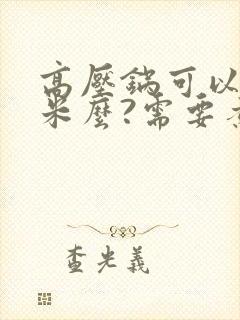 高壓鍋可以
米麼?需要
查光義